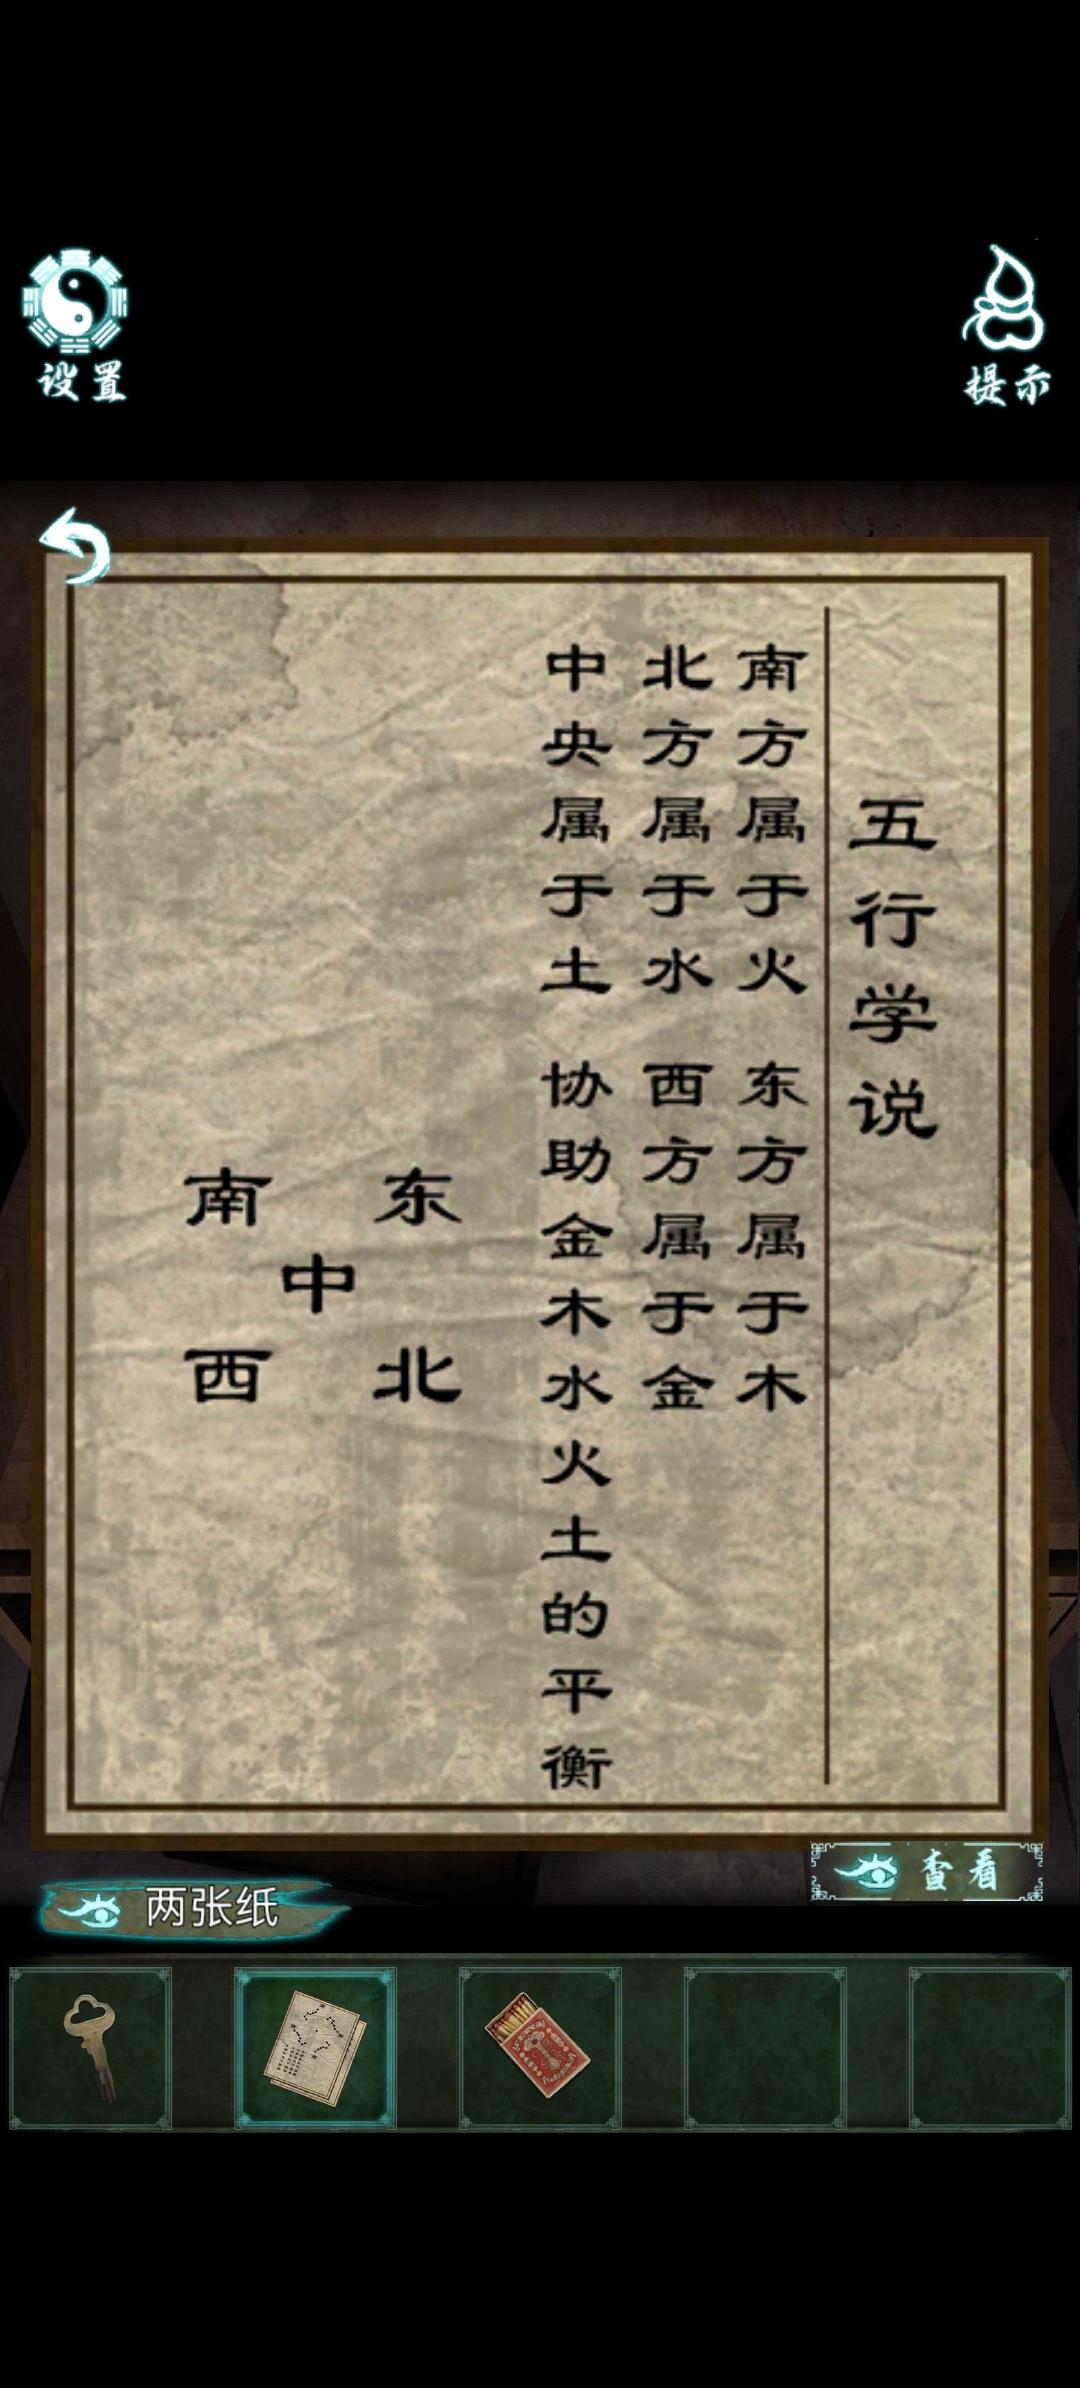 设置
提示
五行学说
南方属于火 东方属于木
北方属于水 西方属于金
中央属于土 协助金木水火土的平衡
南 东
中
西 北
查看
两张纸